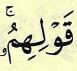 قَوْلِهِمُۥۚ